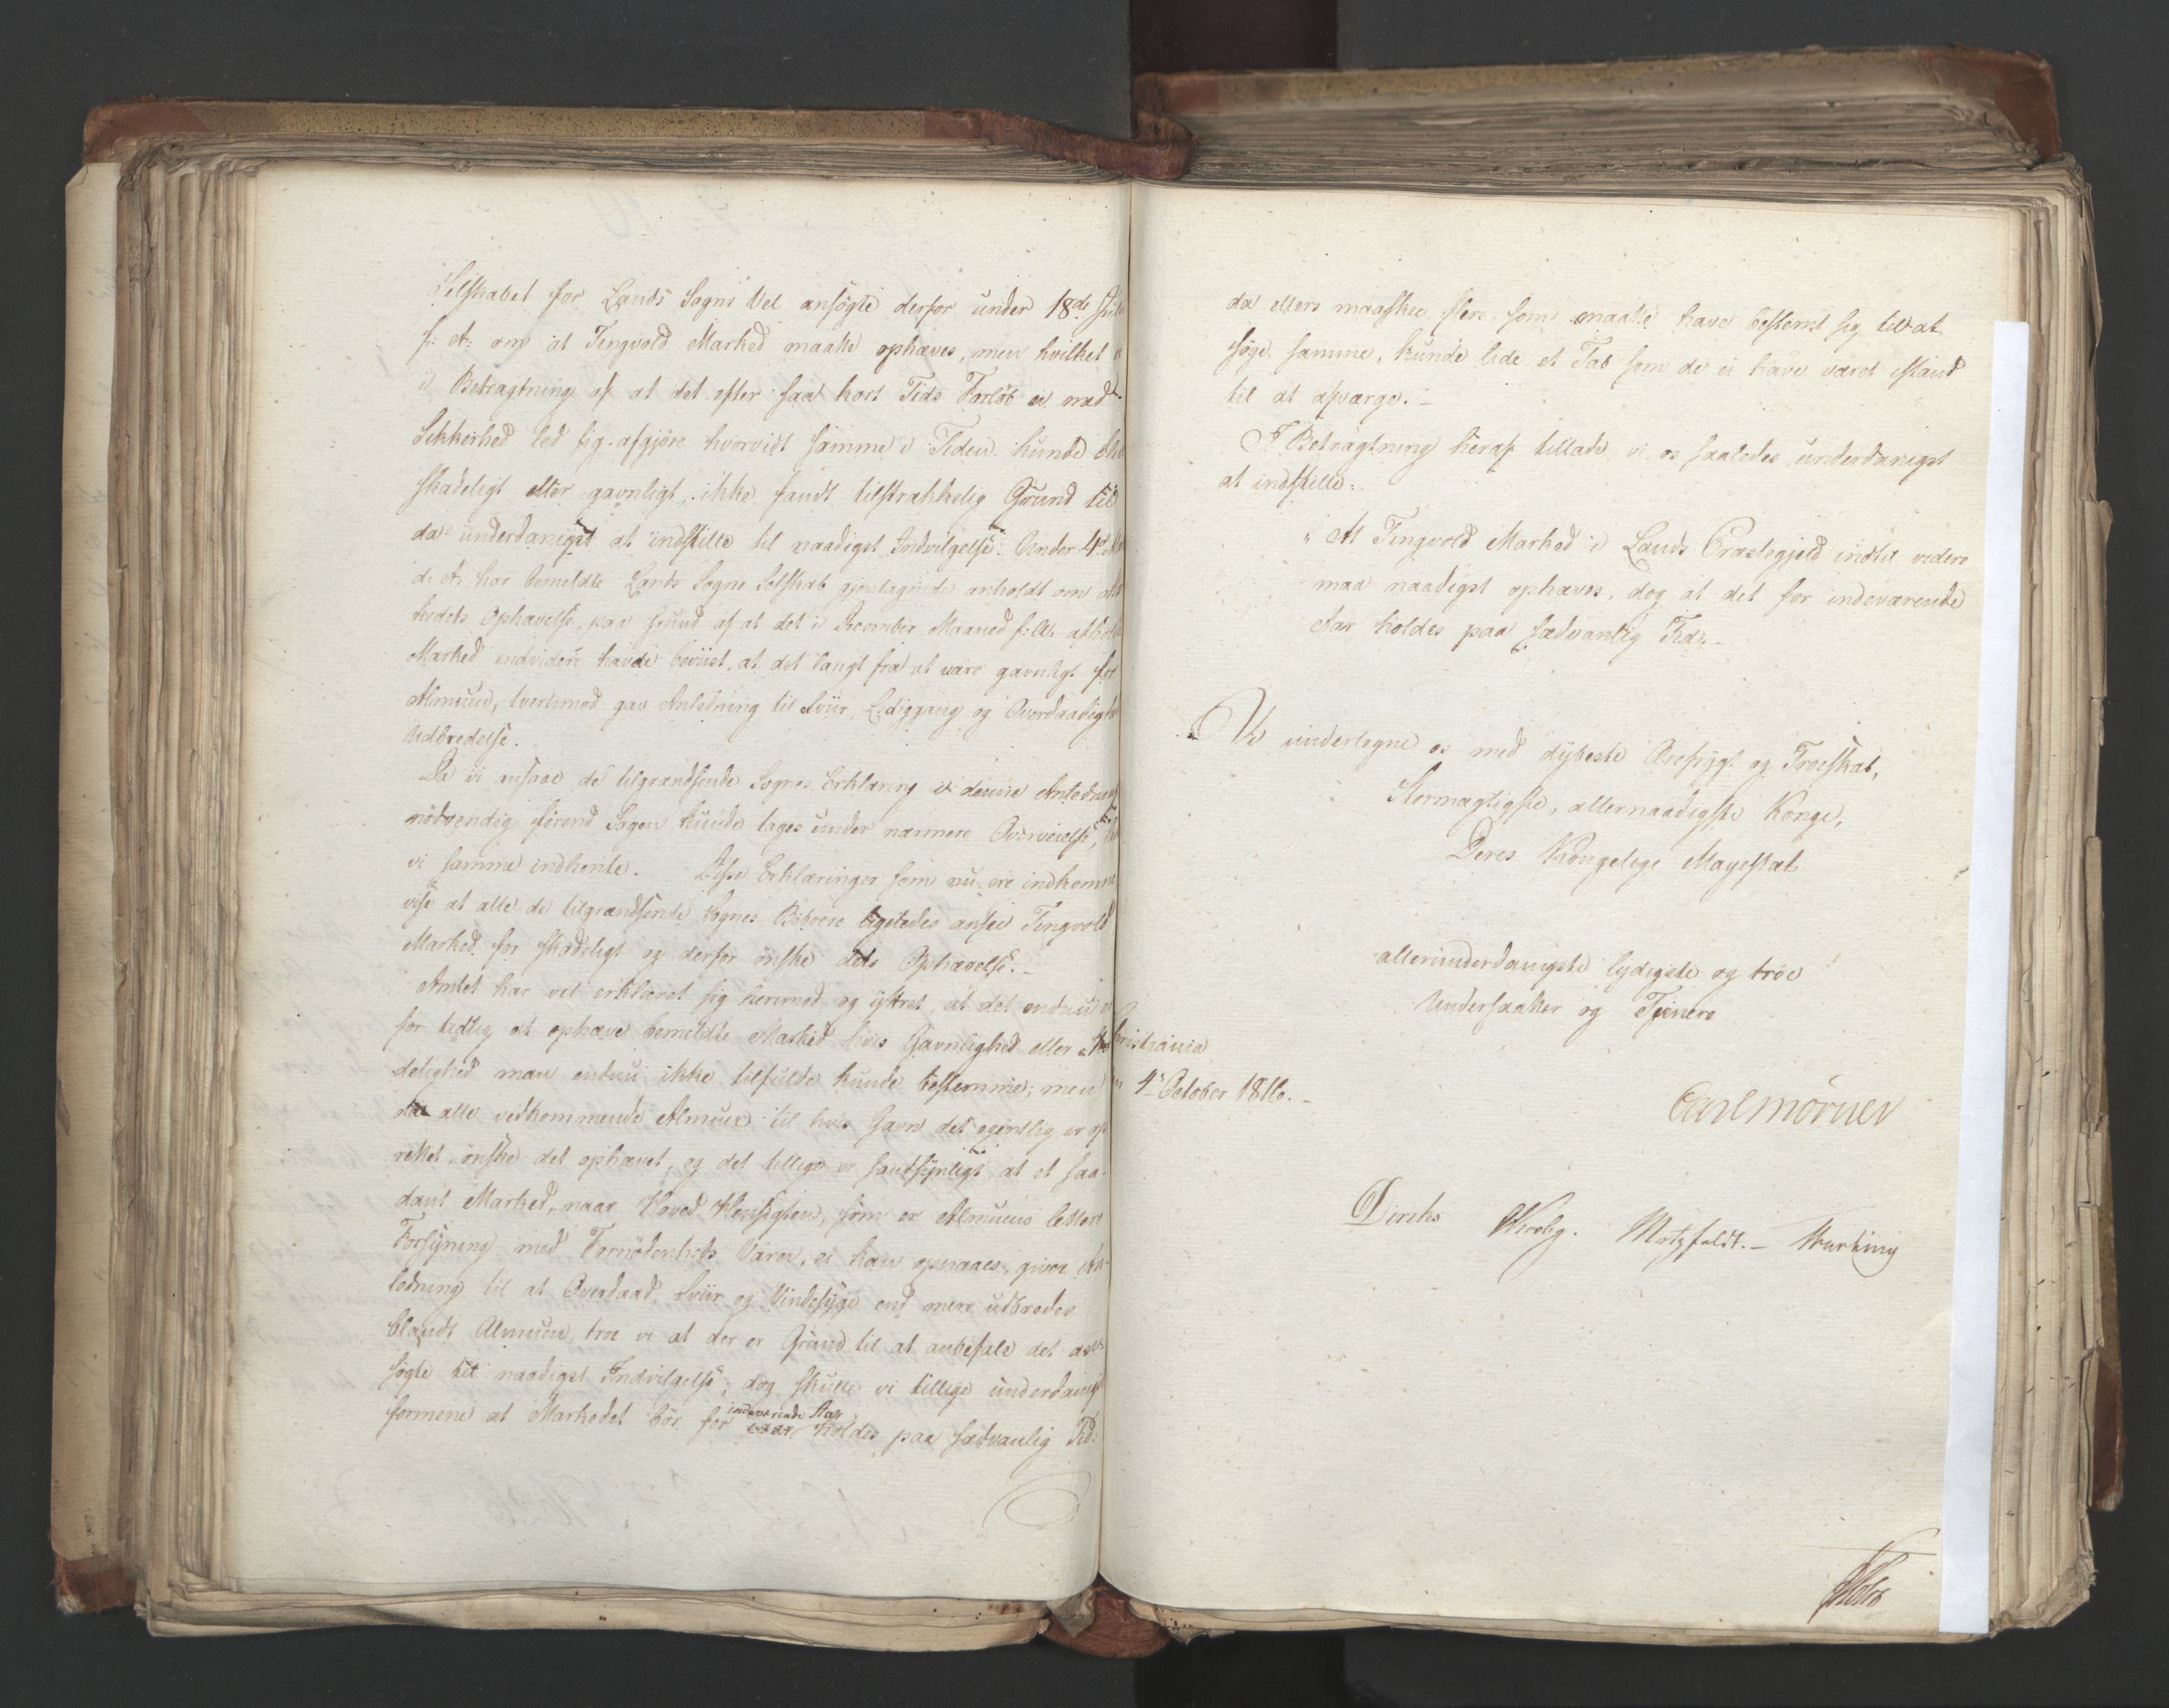 Selskabet for Lands Sogns Vel ansögte derfor under 18de
f: A: om at Tingvold Marked maatte ophæves, men hvilket vi
i Betragtning af at det efter saa kort Tids Forlöb ei med
Sikkerhed lod sig afgjöre hvorvidt samme i Tiden kunde blive
skadeligt eller gavnligt, ikke fandt tilstrækkelig Grund til
da underdanigst at indstille til naadigst Indvilgelse. Under 4de
d: A: har bemeldte Lands Sogne Selskab gjentagende anholdt om Mar-
kedets Ophævelse, paa Grund af at det i December Maaned f: A: afholdte
Marked endvidere havde beviist, at det langt fra at være gavnligt for
Almuen, tvertimod gav Anledning til Sviir, Lediggang og Overdaadigheds
Udbredelse.
Da vi ansaae de tilgrændsende Sognes Erklæring i denne Anledning
nödvendig förend Sagen kunde tages under nærmere Overveielse, lod
vi samme indhente. Disse Erklæringer som nu ere indkomne
vise at alle de tilgrændsende Sognes Beboere ligeledes ansee Tingvold
Marked for skadeligt og derfor önske dets Ophævelse. -
Amtet har vel erklæret sig herimod og yttret, at det endnu er
for tidlig at ophæve bemeldte Marked hvis Gavnlighed eller Ska-
delighed man endnu ikke tilfulde kunde bestemme; men
da alle vedkommende Almuer til hvis Gavn det egentlig er op-
rettet, önske det ophævet, og det tillige er sandsynligt at et saa-
dant Marked, naar Hoved Hensigten, som er Almuens lettere
Forsyning med Fornödenheds Varer, ei kan opnaaes, giver An-
ledning til at Overdaad, Sviir og Vindesyge end mere udbredes
blandt Almuen, troe vi at der er Grund til at anbefale det an-
sögte til naadigst Indvilgelse; dog skulle vi tillige underdanigst
formene at Markedet bör for indeværende Aar holdes paa sædvanlig Tid:
da ellers maaskee flere, som maatte have bestemt sig til at
söge samme, kunde lide et Tab som de ei have været istand
til at afværge. -
I Betragtning heraf tillade vi os saaledes underdanigst
at indstille:
"At Tingvold Marked i Lands Præstegjeld indtil videre
maa naadigst ophæves, dog at det for indeværende
Aar holdes paa sædvanlig Tid. -
Vi undertegne os med dybeste Ærefrygt og Troeskab,
Stormægtigste, allernaadigste Konge,
Deres Kongelige Mayestæt
allerunderdanigste lydigste og troe
Undersaatter og Tjenere
Christiania
den 4de October 1816. -
Carl Mörner
Diriks Krebg. Motzfeldt. -